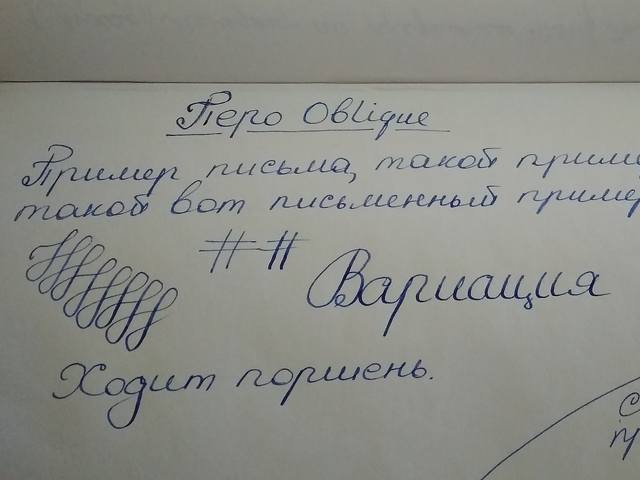 Перо Oblique
Пример письма, такой приме
такой вот письменный пример
Вариация
Ходит поршень.